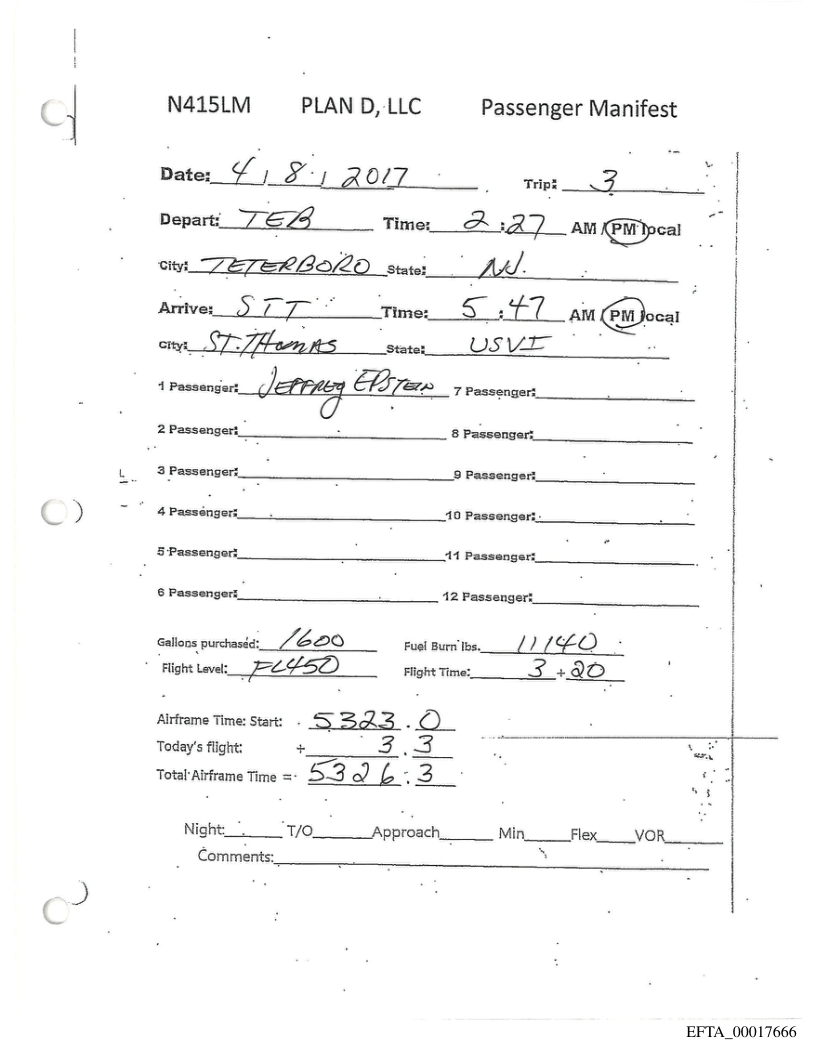 N415LM PLAN D, LLC Passenger Manifest
Date: 4 / 8 / 2017 Trip: 3
Depart: TEB Time: 2:27 AM / PM local
City: TETERBORO State: NJ.
Arrive: STT Time: 5:47 AM / PM local
City: ST. THOMAS State: USVI
1 Passenger: JEFFREY EPSTEIN 7 Passenger:
2 Passenger: 8 Passenger:
3 Passenger: 9 Passenger:
4 Passenger: 10 Passenger:
5 Passenger: 11 Passenger:
6 Passenger: 12 Passenger:
Gallons purchased: 1600 Fuel Burn lbs. 11140
Flight Level: FL450 Flight Time: 3 + 20
Airframe Time: Start: 5323.0
Today's flight: + 3.3
Total Airframe Time = 5326.3
Night: T/O Approach Min Flex VOR
Comments:
EFTA_00017666